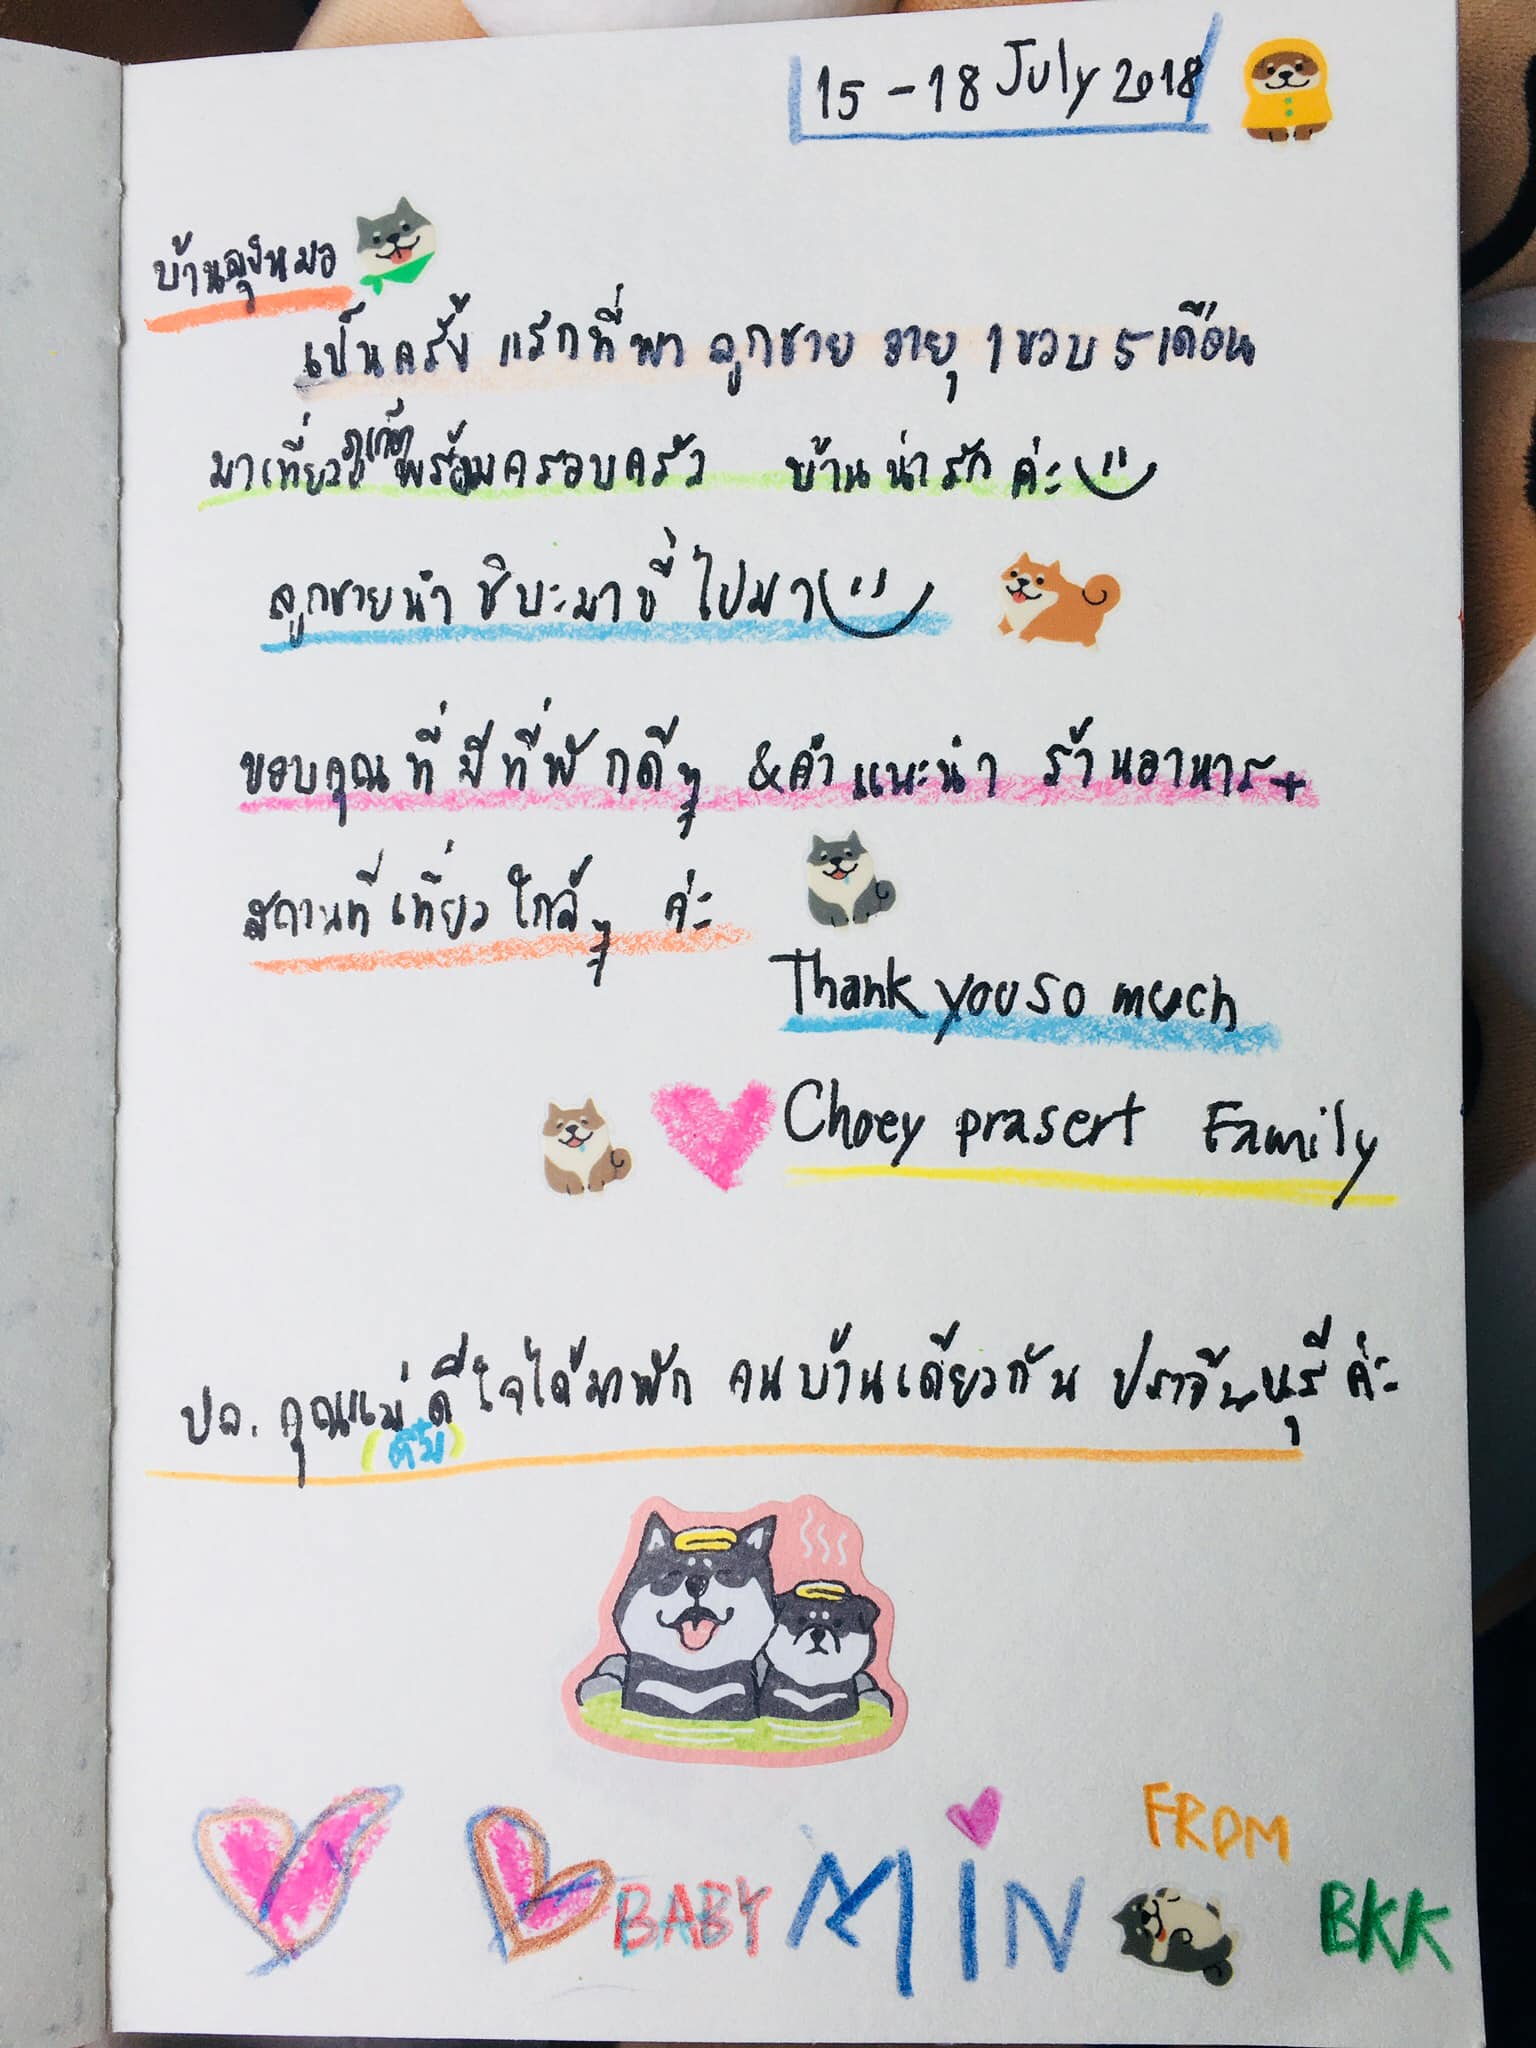 15 - 18 July 2018
บ้านลุงหมอ
เป็นครั้ง แรกที่พา ลูกชาย อายุ 1 ขวบ 5 เดือน
มาเที่ยวภูเก็ตพร้อมครอบครัว บ้านน่ารัก ค่ะ
ลูกชายนำ ชิบะมาขี่ ไปมา
ขอบคุณที่ มีที่พักดีๆ & คำแนะนำ ร้านอาหาร +
สถานที่เที่ยว ใกล้ๆ ค่ะ
Thank you so much
Choey prasert Family
ปล. คุณแม่ ดีใจได้มาพัก คนบ้านเดียวกัน ปราจีนบุรี ค่ะ
(ติ๋ม)
BABY MIN FROM BKK